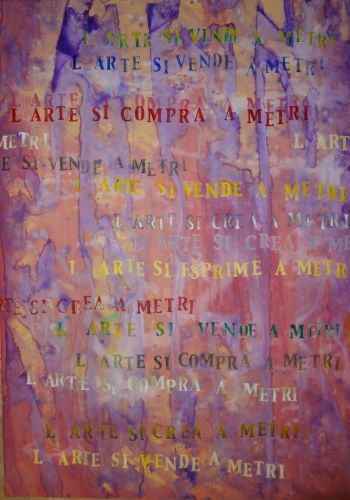 L ARTE SI VENDE A METRI
L ARTE SI VENDE A METRI
L ARTE SI COMPRA A METRI
METRI L ART
E SI VENDE A METRI
L ARTE SI VENDE A METRI
L ARTE SI CREA A METRI
L ARTE SI CREA A ME
L ARTE SI ESPRIME A METR
RTE SI CREA A METRI
L ARTE SI VENDE A METRI
L ARTE SI COMPRA A METRI
L ARTE SI COMPRA A METRI
L ARTE SI CREA A METRI
L ARTE SI VENDE A METRI